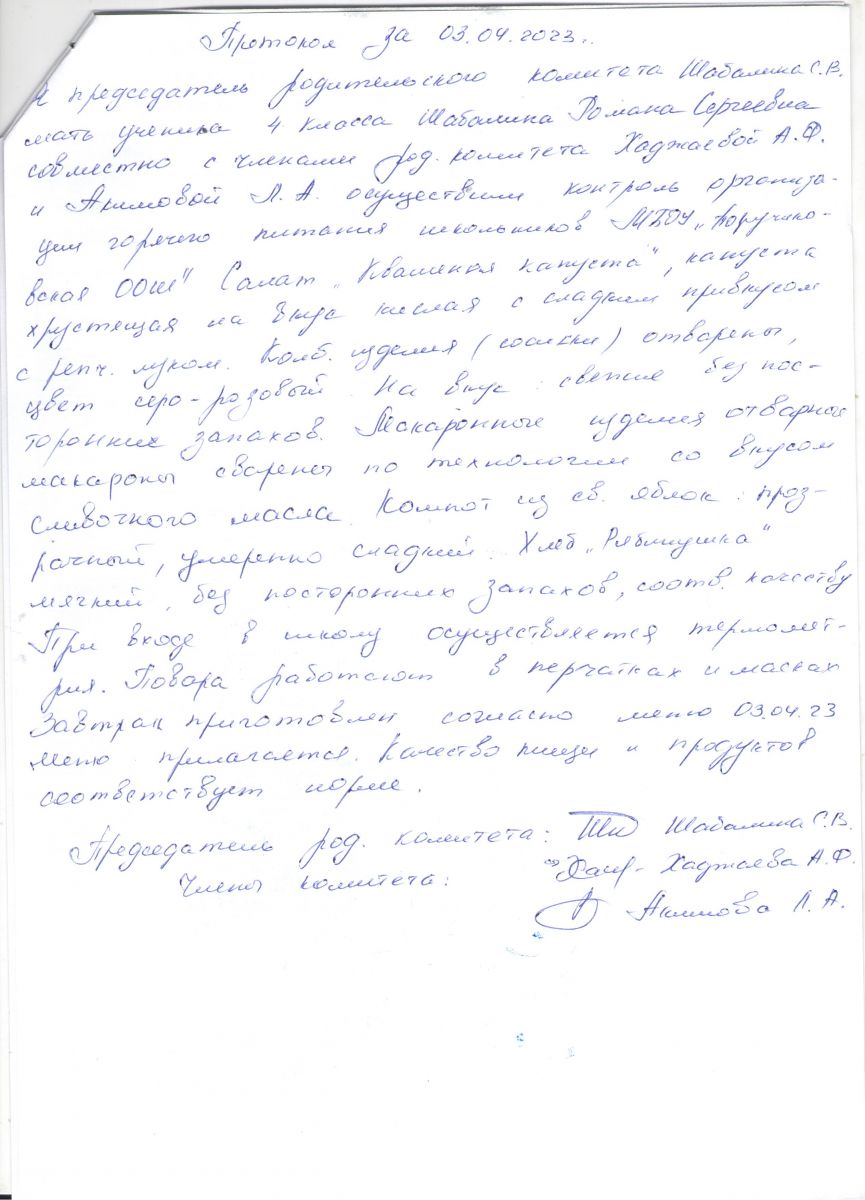 Протокол за 03.04.2023.
Я председатель родительского комитета Шабалина С.В.
мать ученика 4 класса Шабалина Романа Сергеевича
совместно с членами род. комитета Хаджаевой А.Ф.
и Акимовой Л.А. осуществили контроль организа-
ции горячего питания школьников МБОУ „Поручико-
вская ООШ" Салат „Квашеная капуста", капуста
хрустящая на вкус кислая с сладким привкусом
с репч. луком. Колб. изделия (сосиски) отварены,
цвет серо-розовый. На вкус: свежие без пос-
торонних запахов. Макаронные изделия отварные
макароны сварены по технологии со вкусом
сливочного масла. Компот из св. яблок: проз-
рачный, умеренно сладкий. Хлеб „Рябинушка"
мягкий, без посторонних запахов, соотв. качеству
При входе в школу осуществляется термомет-
рия. Повара работают в перчатках и масках
Завтрак приготовлен согласно меню 03.04.23
Меню прилагается. Качество пищи и продуктов
соответствует норме.
Председатель род. комитета: Шабалина С.В.
Члены комитета: Хаджаева А.Ф.
Акимова Л.А.